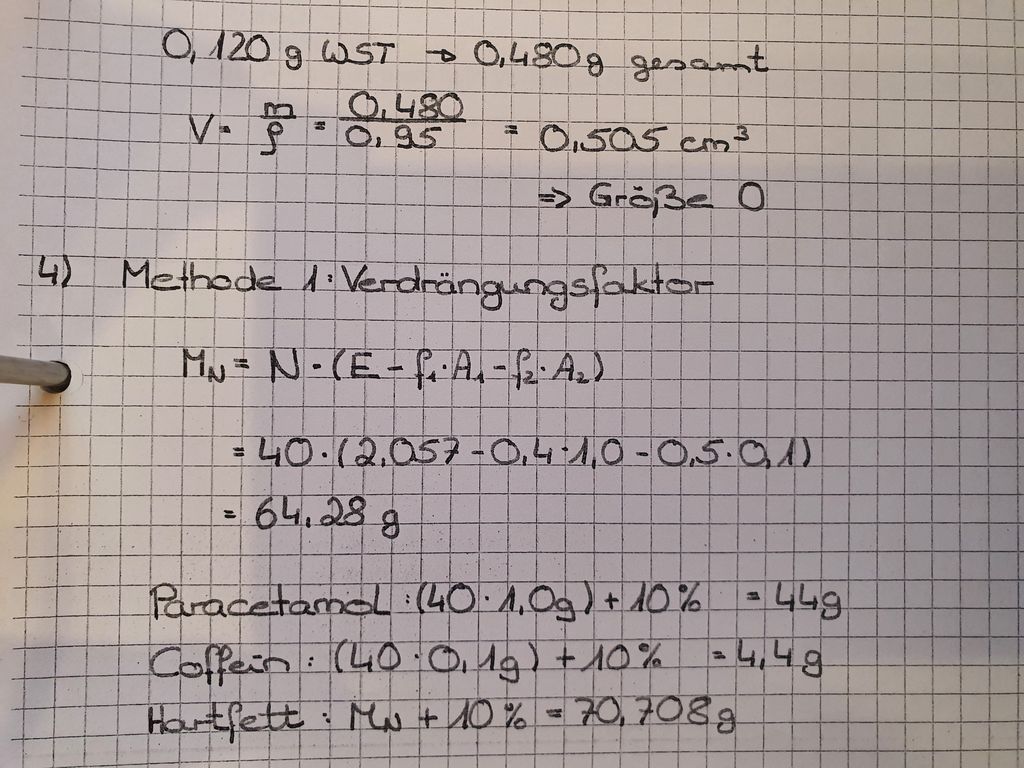 0,120g WST → 0,480g gesamt
V = m/ρ = 0,480/0,95 = 0,505 cm³
⇒ Größe 0
4) Methode 1: Verdrängungsfaktor
M_N = N · (E - f₁·A₁ - f₂·A₂)
= 40·(2,057 - 0,4·1,0 - 0,5·0,1)
= 64,28 g
Paracetamol: (40·1,0g) + 10% = 44g
Coffein: (40·0,1g) + 10% = 4,4g
Hartfett: M_N + 10% = 70,708g